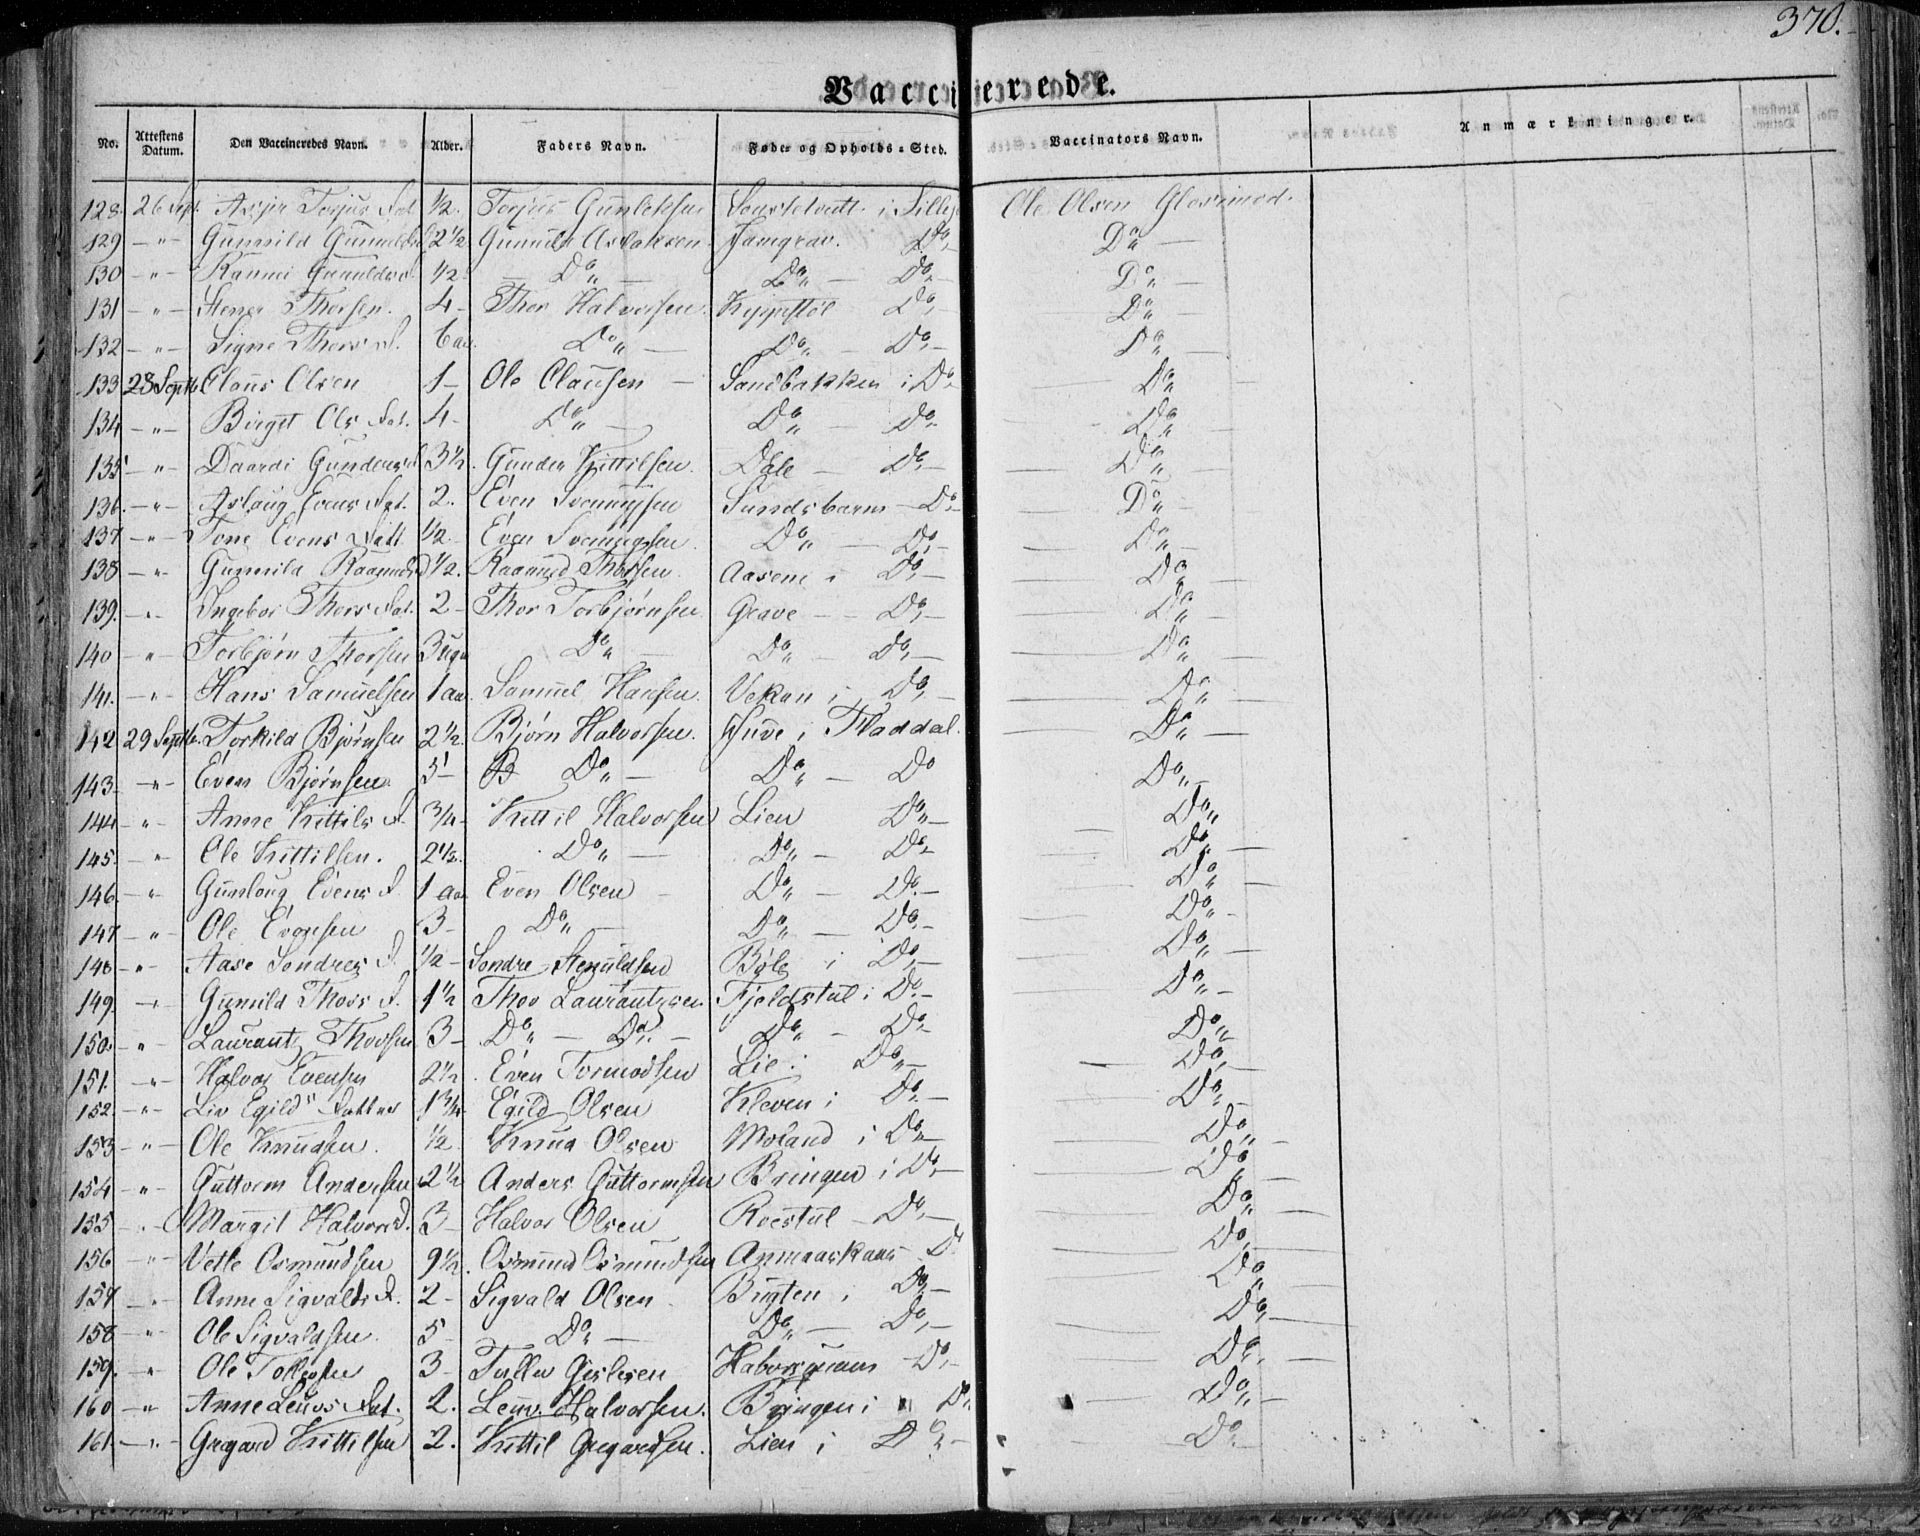 370.
Vaccinerede.
No. Attestens Datum. Den Vaccineredes Navn. Alder. Faders Navn. Føde- og Opholds-Sted. Vaccinators Navn. Anmærkninger.
128. 26 Sept. Torjus Dat. 1/2. Torjus Gunleksen i Ole Olsen
129 -"- Gunnild 2 1/2 Aslaksen. Jamgrav. Do- Do-
130 -"- 1/2. Do- Do- Do- Do-
131 -"- Thorsen. 4- Thor Halvorsen. Do- Do-
132 -"- Signe Thors D. 6 aar. Do- Do- Do- Do-
133 28 Septb. Claus Olsen 1- Ole Clausen Sandbakken i Do- Do
134 -"- Birgit Ols Dat. 4- Do- Do- Do- Do
135 -"- Daardi 3 1/2. Gunder Kittilsen. Dale Do- Do-
136. -"- Aslaug Evens Dat. 2. Even Svenungsen Sundsbarm - Do- Do-
137 -"- Tone Evens Datt 1/2. Even Svenungsen Do- Do- Do-
138 -"- Gunnild 1/2. Raamund Thorsen Aasene i Do- Do-
139. -"- Ingebor Thors Dat. 2- Thor Torbjørnsen. Grave - Do- Do-
140 -"- Torbjørn Thorsen 3 Do- Do- Do- Do-
141. -"- Hans Samuelsen 1 aar. Samuel Hansen. Vekan i Do- Do-
142 29 Septb. Torkild Bjørnsen 2 1/2. Bjørn Halvorsen. i Fladdal. Do-
143- -"- Even Bjørnsen. 5- B Do- Do- Do Do-
144- -"- Anne Kittils D. 3/4- Kittil Halvorsen Lien Do- Do-
145. -"- Ole Kittilsen. 2 1/2. Do- Do- Do- Do-
146- -"- Gunloug Evens D. 1 aar Even Olsen Do- Do- Do-
147- -"- Ole Evensen 3- Do- Do- Do- Do-
148- -"- Aase Sondres D. 1/2- Sondre Stenuldsen Bøle i Do- Do-
149. -"- Gunnild Thors D. 1 1/2 Thor Laurantzsen. Fjeldstul i Do- Do-
150. -"- Laurantz Thorsen 3- Do- Do- Do- Do- Do-
151. -"- Halvor Evensen 2 1/2. Even Tormodsen Lie i Do- Do-
152. -"- Liv Egilds Datter 1 3/4 Egild Olsen Kleven i Do- Do-
153 -"- Ole Knudsen. 1/2 Knud Olsen Moland i Do- Do-
154 -"- Guttorm Andersen 2 1/2 Anders Guttormsen Bringen i Do- Do-
155 -"- Margit Halvors D. 3- Halvor Olsen Roestul - Do- Do-
156 -"- Vetle Osmundsen 9 1/2. Osmund Osmundsen D Do-
157 -"- Anne Sigvalds D. 2- Sigvald Olsen Bugten i Do- Do-
158 -"- Ole Sigvaldsen 5- Do- Do- Do- Do-
159. -"- Ole Tollefsen 3- Do- Do-
160 -"- Anne Leuvs Dat. 2. Leuv Halvorsen. Bringen i Do- Do-
161 -"- Gregard Kittilsen 2. Kittil Gregardsen. Lien i Do- Do-